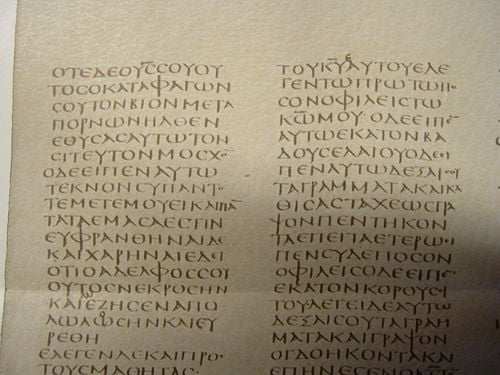 ΟΤΕΔΕΟΥ̅Ϲ̅ϹΟΥΟΥ
ΤΟϹΟΚΑΤΑΦΑΓΩΝ
ϹΟΥΤΟΝΒΙΟΝΜΕΤΑ
ΠΟΡΝΩΝΗΛΘΕΝ
ΕΘΥϹΑϹΑΥΤΩΤΟΝ
ϹΙΤΕΥΤΟΝΜΟϹΧΟ
ΟΔΕΕΙΠΕΝΑΥΤΩ
ΤΕΚΝΟΝϹΥΠΑΝΤΟ
ΤΕΜΕΤΕΜΟΥΕΙΚΑΙΠΑ
ΤΑΤΑΕΜΑϹΑΕϹΤΙΝ
ΕΥΦΡΑΝΘΗΝΑΙΔΕ
ΚΑΙΧΑΡΗΝΑΙΕΔΕΙ
ΟΤΙΟΑΔΕΛΦΟϹϹΟΥ
ΟΥΤΟϹΝΕΚΡΟϹΗΝ
ΚΑΙΕΖΗϹΕΝΑΠΟ
ΛΩΛΩϹΗΝΚΑΙΕΥ
ΡΕΘΗ
ΕΛΕΓΕΝΔΕΚΑΙΠΡΟϹ
ΤΟΥϹΜΑΘΗΤΑϹ
ΤΟΥΚ̅Υ̅ΑΥΤΟΥΕΛΕ
ΓΕΝΤΩΠΡΩΤΩΠΟ
ϹΟΝΟΦΙΛΕΙϹΤΩ
Κ̅Ω̅ΜΟΥ·ΟΔΕΕΙΠΕ
ΑΥΤΩΕΚΑΤΟΝΒΑ
ΔΟΥϹΕΛΑΙΟΥΟΔΕΕΙ
ΠΕΝΑΥΤΩΔΕΞΑΙϹΟΥ
ΤΑΓΡΑΜΜΑΤΑΚΑΙΚΑ
ΘΙϹΑϹΤΑΧΕΩϹΓΡΑ
ΨΟΝΠΕΝΤΗΚΟΝ
ΤΑΕΠΕΙΤΑΕΤΕΡΩΕΙ
ΠΕΝϹΥΔΕΠΟϹΟΝ
ΟΦΙΛΕΙϹΟΔΕΕΙΠΕ
ΕΚΑΤΟΝΚΟΡΟΥϹϹΙ
ΤΟΥΛΕΓΕΙΔΕΑΥΤΩ
ΔΕΞΑΙϹΟΥΤΑΓΡΑΜ
ΜΑΤΑΚΑΙΓΡΑΨΟΝ
ΟΓΔΟΗΚΟΝΤΑΚΑΙ
ΕΠΗΝΕϹΕΝ